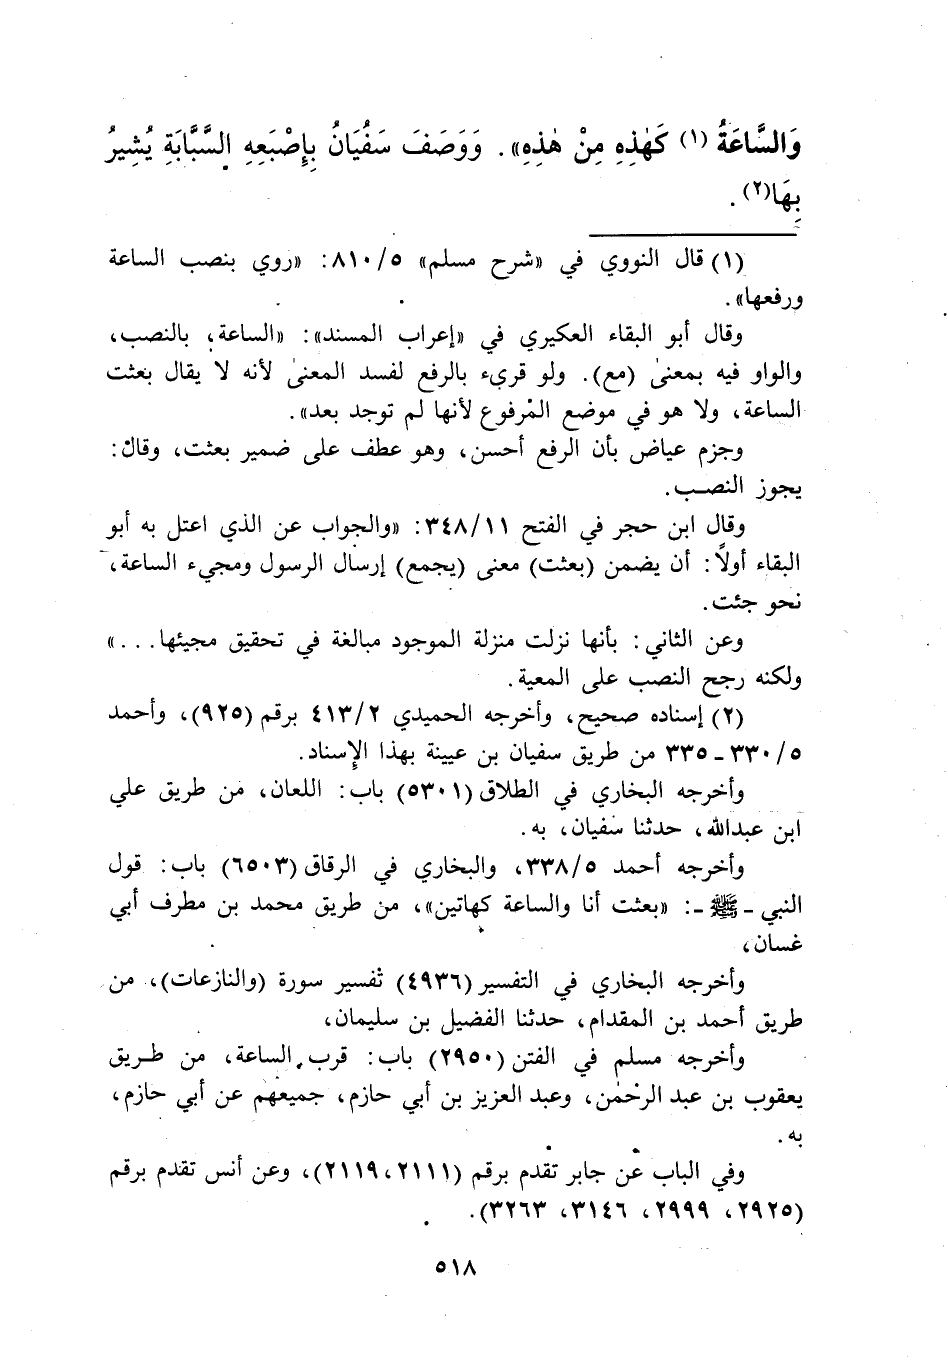 وَالسَّاعَةُ (١) كَهٰذِهِ مِنْ هٰذِهِ» . وَوَصَفَ سَفُيَانُ بِإِصْبَعِهِ السَّبَّابَةِ يُشِيرُ
بِهَا(٢) .
(١) قال النووي في «شرح مسلم» ٨١٠/٥: «روي بنصب الساعة
ورفعها».
وقال أبو البقاء العكيري في «إعراب المسند»: «الساعة، بالنصب،
والواو فيه بمعنىٰ (مع). ولو قرىء بالرفع لفسد المعنىٰ لأنه لا يقال بعثت
الساعة، ولا هو في موضع المرفوع لأنها لم توجد بعد».
وجزم عياض بأن الرفع أحسن، وهو عطف على ضمير بعثت، وقال:
يجوز النصب.
وقال ابن حجر في الفتح ٣٤٨/١١: «والجواب عن الذي اعتل به أبو
البقاء أولاً: أن يضمن (بعثت) معنى (يجمع) إرسال الرسول ومجيء الساعة،
نحو جئت.
وعن الثاني: بأنها نزلت منزلة الموجود مبالغة في تحقيق مجيئها...»
ولكنه رجح النصب على المعية.
(٢) إسناده صحيح، وأخرجه الحميدي ٤١٣/٢ برقم (٩٢٥)، وأحمد
٣٣٠/٥ـ ٣٣٥ من طريق سفيان بن عيينة بهذا الإسناد.
وأخرجه البخاري في الطلاق (٥٣٠١) باب: اللعان، من طريق علي
ابن عبدالله، حدثنا سفيان، به.
وأخرجه أحمد ٣٣٨/٥، والبخاري في الرقاق (٦٥٠٣) باب: قول
النبي ـ ﷺ ـ: «بعثت أنا والساعة كهاتين»، من طريق محمد بن مطرف أبي
غسان،
وأخرجه البخاري في التفسير (٤٩٣٦) تفسير سورة (والنازعات)، من
طريق أحمد بن المقدام، حدثنا الفضيل بن سليمان،
وأخرجه مسلم في الفتن (٢٩٥٠) باب: قرب الساعة، من طريق
يعقوب بن عبد الرحمٰن، وعبد العزيز بن أبي حازم، جميعهم عن أبي حازم،
به.
وفي الباب عن جابر تقدم برقم (٢١١١، ٢١١٩)، وعن أنس تقدم برقم
(٢٩٢٥، ٢٩٩٩، ٣١٤٦، ٣٢٦٣).
٥١٨